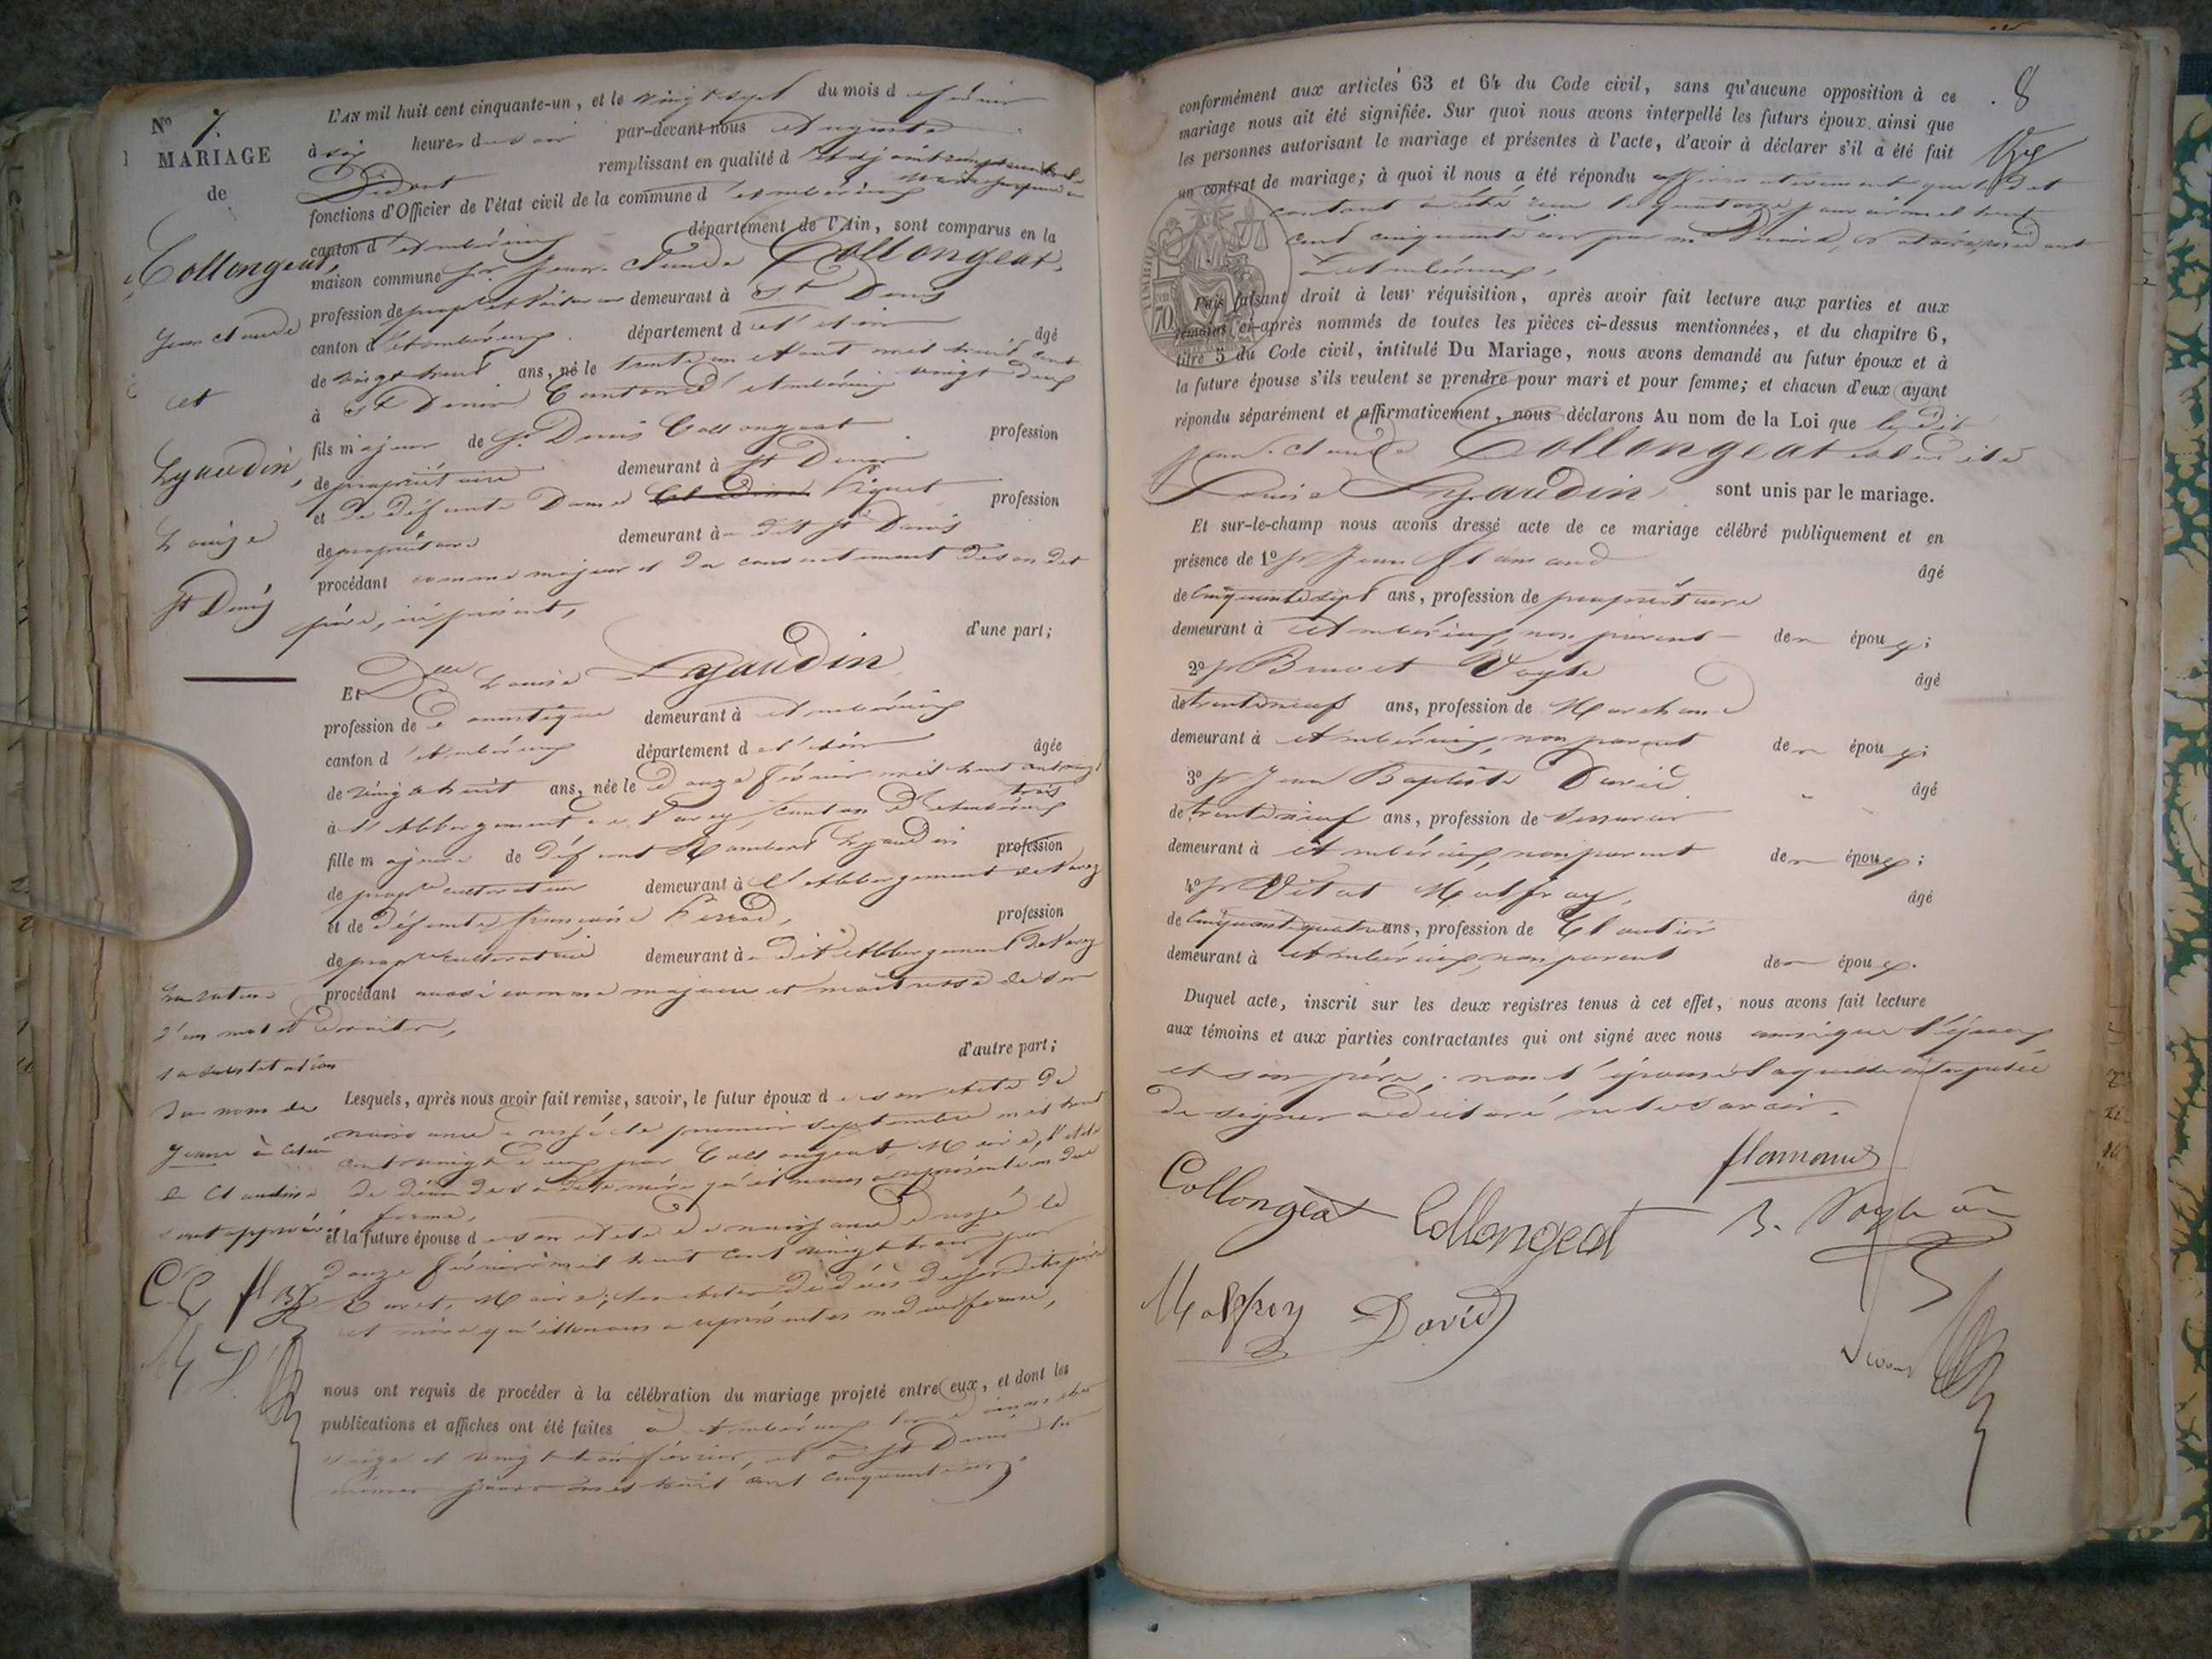 N° 7.
MARIAGE
de
Collongeat,
Jean Claude
et
Lyaudin,
Louise
St Denis
L'AN mil huit cent cinquante-un, et le vingt sept du mois d février
à six heures du soir par-devant nous Auguste
Didout remplissant en qualité d'adjoint
fonctions d'Officier de l'état civil de la commune d'Ambérieux
canton d'Ambérieux département de l'Ain, sont comparus en la
maison commune Sr. Jean-Claude Collongeat,
profession de demeurant à St Denis
canton d'Ambérieux département de l'Ain âgé
de vingt huit ans, né le trente un Aout mil huit cent
vingt deux
à St Denis Canton d'Ambérieux
fils majeur de Sr. Denis Collongeat profession
de propriétaire demeurant à St Denis
et de défunte Dame Piquet profession
de propriétaire demeurant à dit St Denis
procédant comme majeur et du consentement de son dit
père, ici présent,
d'une part;
Et Dlle Louise Lyaudin
profession de domestique demeurant à Ambérieux
canton d'Ambérieux département de l'Ain âgée
de vingt huit ans, née le douze février mil huit cent vingt
trois
à l'Abbergement de Varey, canton d'Ambérieux
fille majeure de défunt Rambert Lyaudin profession
de propre cultivateur demeurant à l'Abbergement de Varey
et de défunte françoise profession
de propre cultivatrice demeurant à dit Abbergement de Varey
procédant aussi comme majeure et maîtresse de ses
droits,
d'autre part;
La rature
d'un mot et
la substitution
du nom de
Jeanne à celui
de Claudine
sont approuvés
C C fl BV
M D
Lesquels, après nous avoir fait remise, savoir, le futur époux de son acte de
naissance rédigé le premier septembre mil huit
cent vingt deux par Collongeat, Maire, l'acte
de décès de sa dite mère qu'il nous a représenté en due
forme,
et la future épouse de son acte de naissance rédigé le
douze février mil huit cent vingt trois par
Maire, les actes de décès de ses dits père
et mère qu'elle nous a représentés en due forme,
nous ont requis de procéder à la célébration du mariage projeté entre eux, et dont les
publications et affiches ont été faites à Ambérieux les dimanches
seize et vingt trois février, et à St Denis les
mêmes jours mil huit cent cinquante un.
8
conformément aux articles 63 et 64 du Code civil, sans qu'aucune opposition à ce
mariage nous ait été signifiée. Sur quoi nous avons interpellé les futurs époux ainsi que
les personnes autorisant le mariage et présentes à l'acte, d'avoir à déclarer s'il a été fait
un contrat de mariage; à quoi il nous a été répondu affirmativement que le dit
contrat a été reçu le quatorze janvier mil huit
cent cinquante un par me notaire, résidant
à Ambérieux,
TIMBRE
70
Puis faisant droit à leur réquisition, après avoir fait lecture aux parties et aux
témoins ci-après nommés de toutes les pièces ci-dessus mentionnées, et du chapitre 6,
titre 5 du Code civil, intitulé Du Mariage, nous avons demandé au futur époux et à
la future épouse s'ils veulent se prendre pour mari et pour femme; et chacun d'eux ayant
répondu séparément et affirmativement, nous déclarons Au nom de la Loi que le dit
Jean-Claude Collongeat et la dite
Louise Lyaudin sont unis par le mariage.
Et sur-le-champ nous avons dressé acte de ce mariage célébré publiquement et en
présence de 1° Sr Jean Flamand âgé
de cinquante sept ans, profession de propriétaire
demeurant à Ambérieux, non parent des époux;
2° Sr Benoit Vayle âgé
de trente neuf ans, profession de Marchand
demeurant à Ambérieux, non parent des époux;
3° Sr Jean Baptiste David âgé
de trente neuf ans, profession de serrurier
demeurant à Ambérieux, non parent des époux;
4° Sr Vital Matfray, âgé
de cinquante quatre ans, profession de Cloutier
demeurant à Ambérieux, non parent des époux.
Duquel acte, inscrit sur les deux registres tenus à cet effet, nous avons fait lecture
aux témoins et aux parties contractantes qui ont signé avec nous ainsi que l'époux
et son père, non l'épouse laquelle interpellée
de signer a déclaré ne le savoir.
flamand
Collongeat Collongeat B. Vayle ainé
Matfrey David